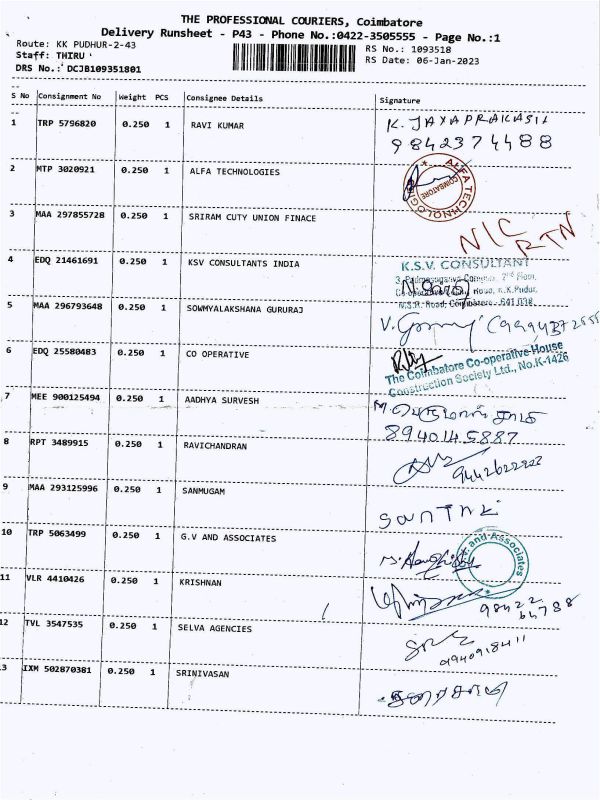 THE PROFESSIONAL COURIERS, Coimbatore
Delivery Runsheet - P43 - Phone No.:0422-3505555 - Page No.:1
Route: KK PUDHUR-2-43
RS No.: 1093518
Staff: THIRU
RS Date: 06-Jan-2023
DRS No.: DCJB109351801
S No Consignment No Weight PCS Consignee Details Signature
1 TRP 5796820 0.250 1 RAVI KUMAR K. JAYAPRAKASH
9842374488
2 MTP 3020921 0.250 1 ALFA TECHNOLOGIES
ALFA TECHNOLOGIES COIMBATORE
3 MAA 297855728 0.250 1 SRIRAM CUTY UNION FINACE NIC
RTN
4 EDQ 21461691 0.250 1 KSV CONSULTANTS INDIA K.S.V. CONSULTANT
2nd Floor,
K.K.Pudur,
N.S.R. Road, Coimbatore - 641 038.
5 MAA 296793648 0.250 1 SOWMYALAKSHANA GURURAJ
6 EDQ 25580483 0.250 1 CO OPERATIVE
The Coimbatore Co-operative House
Construction Society Ltd., No.K-1426
7 MEE 900125494 0.250 1 AADHYA SURVESH
8940145887
8 RPT 3489915 0.250 1 RAVICHANDRAN
9 MAA 293125996 0.250 1 SANMUGAM
10 TRP 5063499 0.250 1 G.V AND ASSOCIATES
and Associates
11 VLR 4410426 0.250 1 KRISHNAN
98422
64788
12 TVL 3547535 0.250 1 SELVA AGENCIES
9940918411
13 IXM 502870381 0.250 1 SRINIVASAN